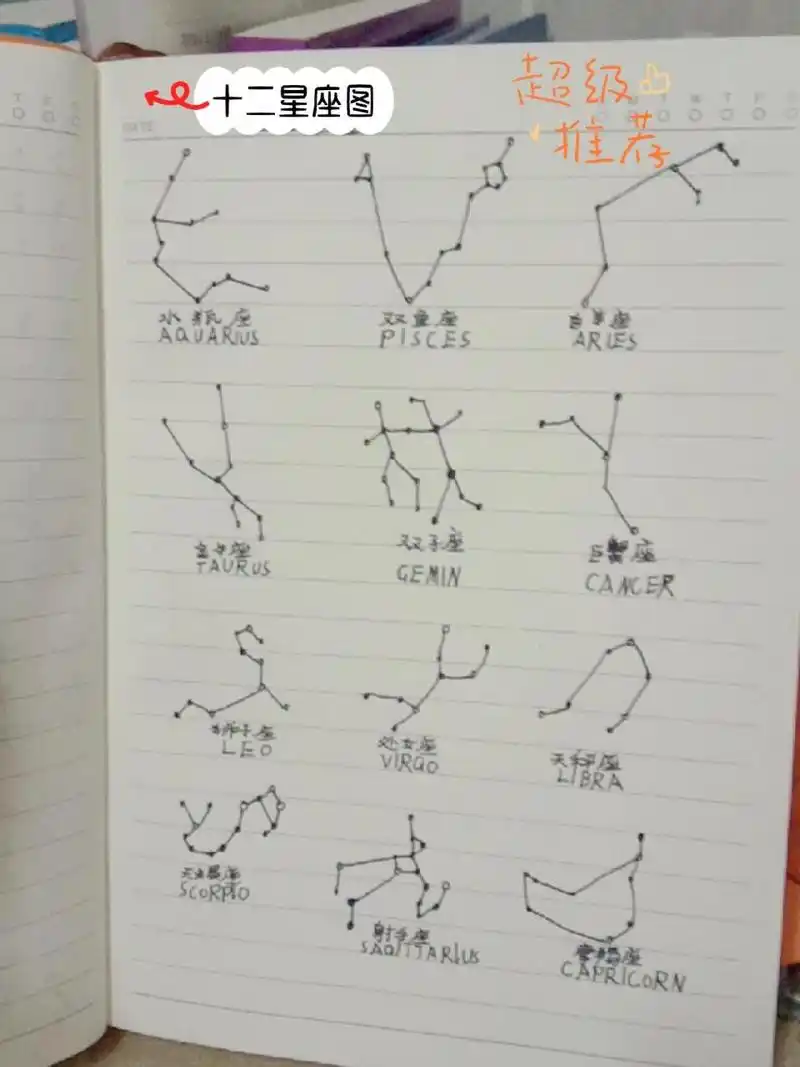 十二星座图
超级
推荐
DATE
水瓶座
AQUARIUS
双鱼座
PISCES
白羊座
ARIES
金牛座
TAURUS
双子座
GEMIN
巨蟹座
CANCER
狮子座
LEO
处女座
VIRGO
天秤座
LIBRA
天蝎座
SCORPIO
射手座
SAGITTARIUS
摩羯座
CAPRICORN